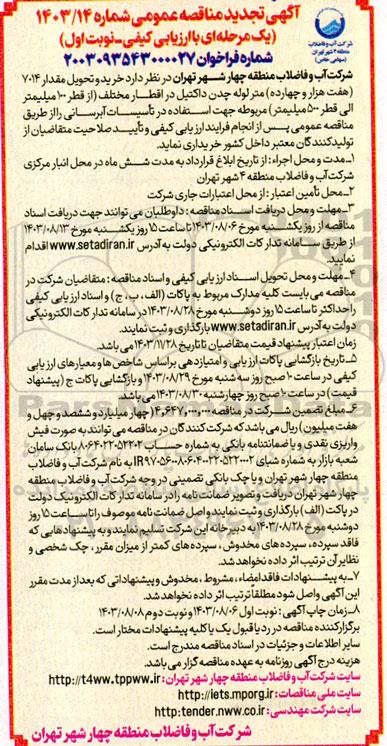 آگهی تجدید مناقصه عمومی شماره ۱۴۰۳/۱۴
(یک مرحله‌ای با ارزیابی کیفی - نوبت اول)
شماره فراخوان ۲۰۰۳۰۹۳۵۴۳۰۰۰۰۲۷
شرکت آب و فاضلاب
منطقه ۴ شهر تهران
(سهامی خاص)
شرکت آب و فاضلاب منطقه چهار شهر تهران در نظر دارد خرید و تحویل مقدار ۷۰۱۴
(هفت هزار و چهارده) متر لوله چدن داکتیل در اقطار مختلف (از قطر ۱۰۰ میلیمتر
الی قطر ۵۰۰ میلیمتر) مربوطه جهت استفاده در تأسیسات آبرسانی را از طریق
مناقصه عمومی پس از انجام فرایند ارزیابی کیفی و تأیید صلاحیت متقاضیان از
تولیدکنندگان معتبر داخل کشور خریداری نماید.
۱- مدت و محل اجراء : از تاریخ ابلاغ قرارداد به مدت شش ماه در محل انبار مرکزی
شرکت آب و فاضلاب منطقه ۴ شهر تهران
۲- محل تأمین اعتبار : از محل اعتبارات جاری شرکت
۳- مهلت و محل دریافت اسناد مناقصه : داوطلبان می توانند جهت دریافت اسناد
مناقصه از روز یکشنبه مورخ ۱۴۰۳/۰۸/۰۶ تا ساعت ۱۵ روز یکشنبه مورخ ۱۴۰۳/۰۸/۱۳
از طریق سامانه تدارکات الکترونیکی دولت به آدرس www.setadiran.ir اقدام
نمایند.
۴- مهلت و محل تحویل اسناد ارزیابی کیفی و اسناد مناقصه : متقاضیان شرکت در
مناقصه می بایست کلیه مدارک مربوط به پاکات (الف، ب، ج) و اسناد ارزیابی کیفی
را حداکثر تا ساعت ۱۵ روز دوشنبه مورخ ۱۴۰۳/۰۸/۲۸ در سامانه تدارکات الکترونیکی
دولت به آدرس www.setadiran.ir بارگذاری و ثبت نمایند.
زمان اعتبار پیشنهاد قیمت متقاضیان تا تاریخ ۱۴۰۳/۱۱/۲۸ می باشد.
۵- تاریخ بازگشایی پاکات ارزیابی و امتیازدهی براساس شاخص ها و معیارهای ارزیابی
کیفی در ساعت ۱۰ صبح روز سه شنبه مورخ ۱۴۰۳/۰۸/۲۹ و بازگشایی پاکات ج (پیشنهاد
قیمت) در ساعت ۱۰ صبح روز چهارشنبه ۱۴۰۳/۰۸/۳۰ می باشد.
۶- مبلغ تضمین شرکت در مناقصه ۴,۶۴۷,۰۰۰,۰۰۰ (چهار میلیارد و ششصد و چهل و
هفت میلیون) ریال می باشد که شرکت کنندگان در مناقصه می توانند به صورت فیش
واریزی نقدی و یا ضمانتنامه بانکی به شماره حساب بانک سامان
شعبه بازار به شماره شبای به نام شرکت آب و فاضلاب
منطقه چهار شهر تهران و یا چک بانکی تضمینی در وجه شرکت آب و فاضلاب منطقه
چهار شهر تهران دریافت و تصویر ضمانت نامه را در سامانه تدارکات الکترونیک دولت
در پاکت (الف) بارگذاری و ثبت نمایند و اصل ضمانت نامه موصوف را تا ساعت ۱۵ روز
دوشنبه مورخ ۱۴۰۳/۰۸/۲۸ به دبیرخانه این شرکت تسلیم نمایند و به پیشنهادهایی که
فاقد سپرده، سپرده های مخدوش، سپرده های کمتر از میزان مقرر، چک شخصی و
نظایر آن ترتیب اثر داده نخواهد شد.
۷- به پیشنهادات فاقد امضاء، مشروط، مخدوش و پیشنهاداتی که بعد از مدت مقرر
این آگهی واصل شود مطلقا ترتیب اثر داده نخواهد شد.
۸- زمان چاپ آگهی : نوبت اول ۱۴۰۳/۰۸/۰۶ و نوبت دوم ۱۴۰۳/۰۸/۰۸
برگزارکننده مناقصه در رد یا قبول یک یا کلیه پیشنهادات مختار است.
سایر اطلاعات و جزئیات در اسناد مناقصه مندرج است.
هزینه درج آگهی روزنامه به عهده مناقصه گزار می باشد.
سایت شرکت آب و فاضلاب منطقه چهار شهر تهران : http://t4ww.tppww.ir
سایت ملی مناقصات : http://iets.mporg.ir
سایت شرکت مهندسی : http:tender.nww.co.ir
شرکت آب و فاضلاب منطقه چهار شهر تهران